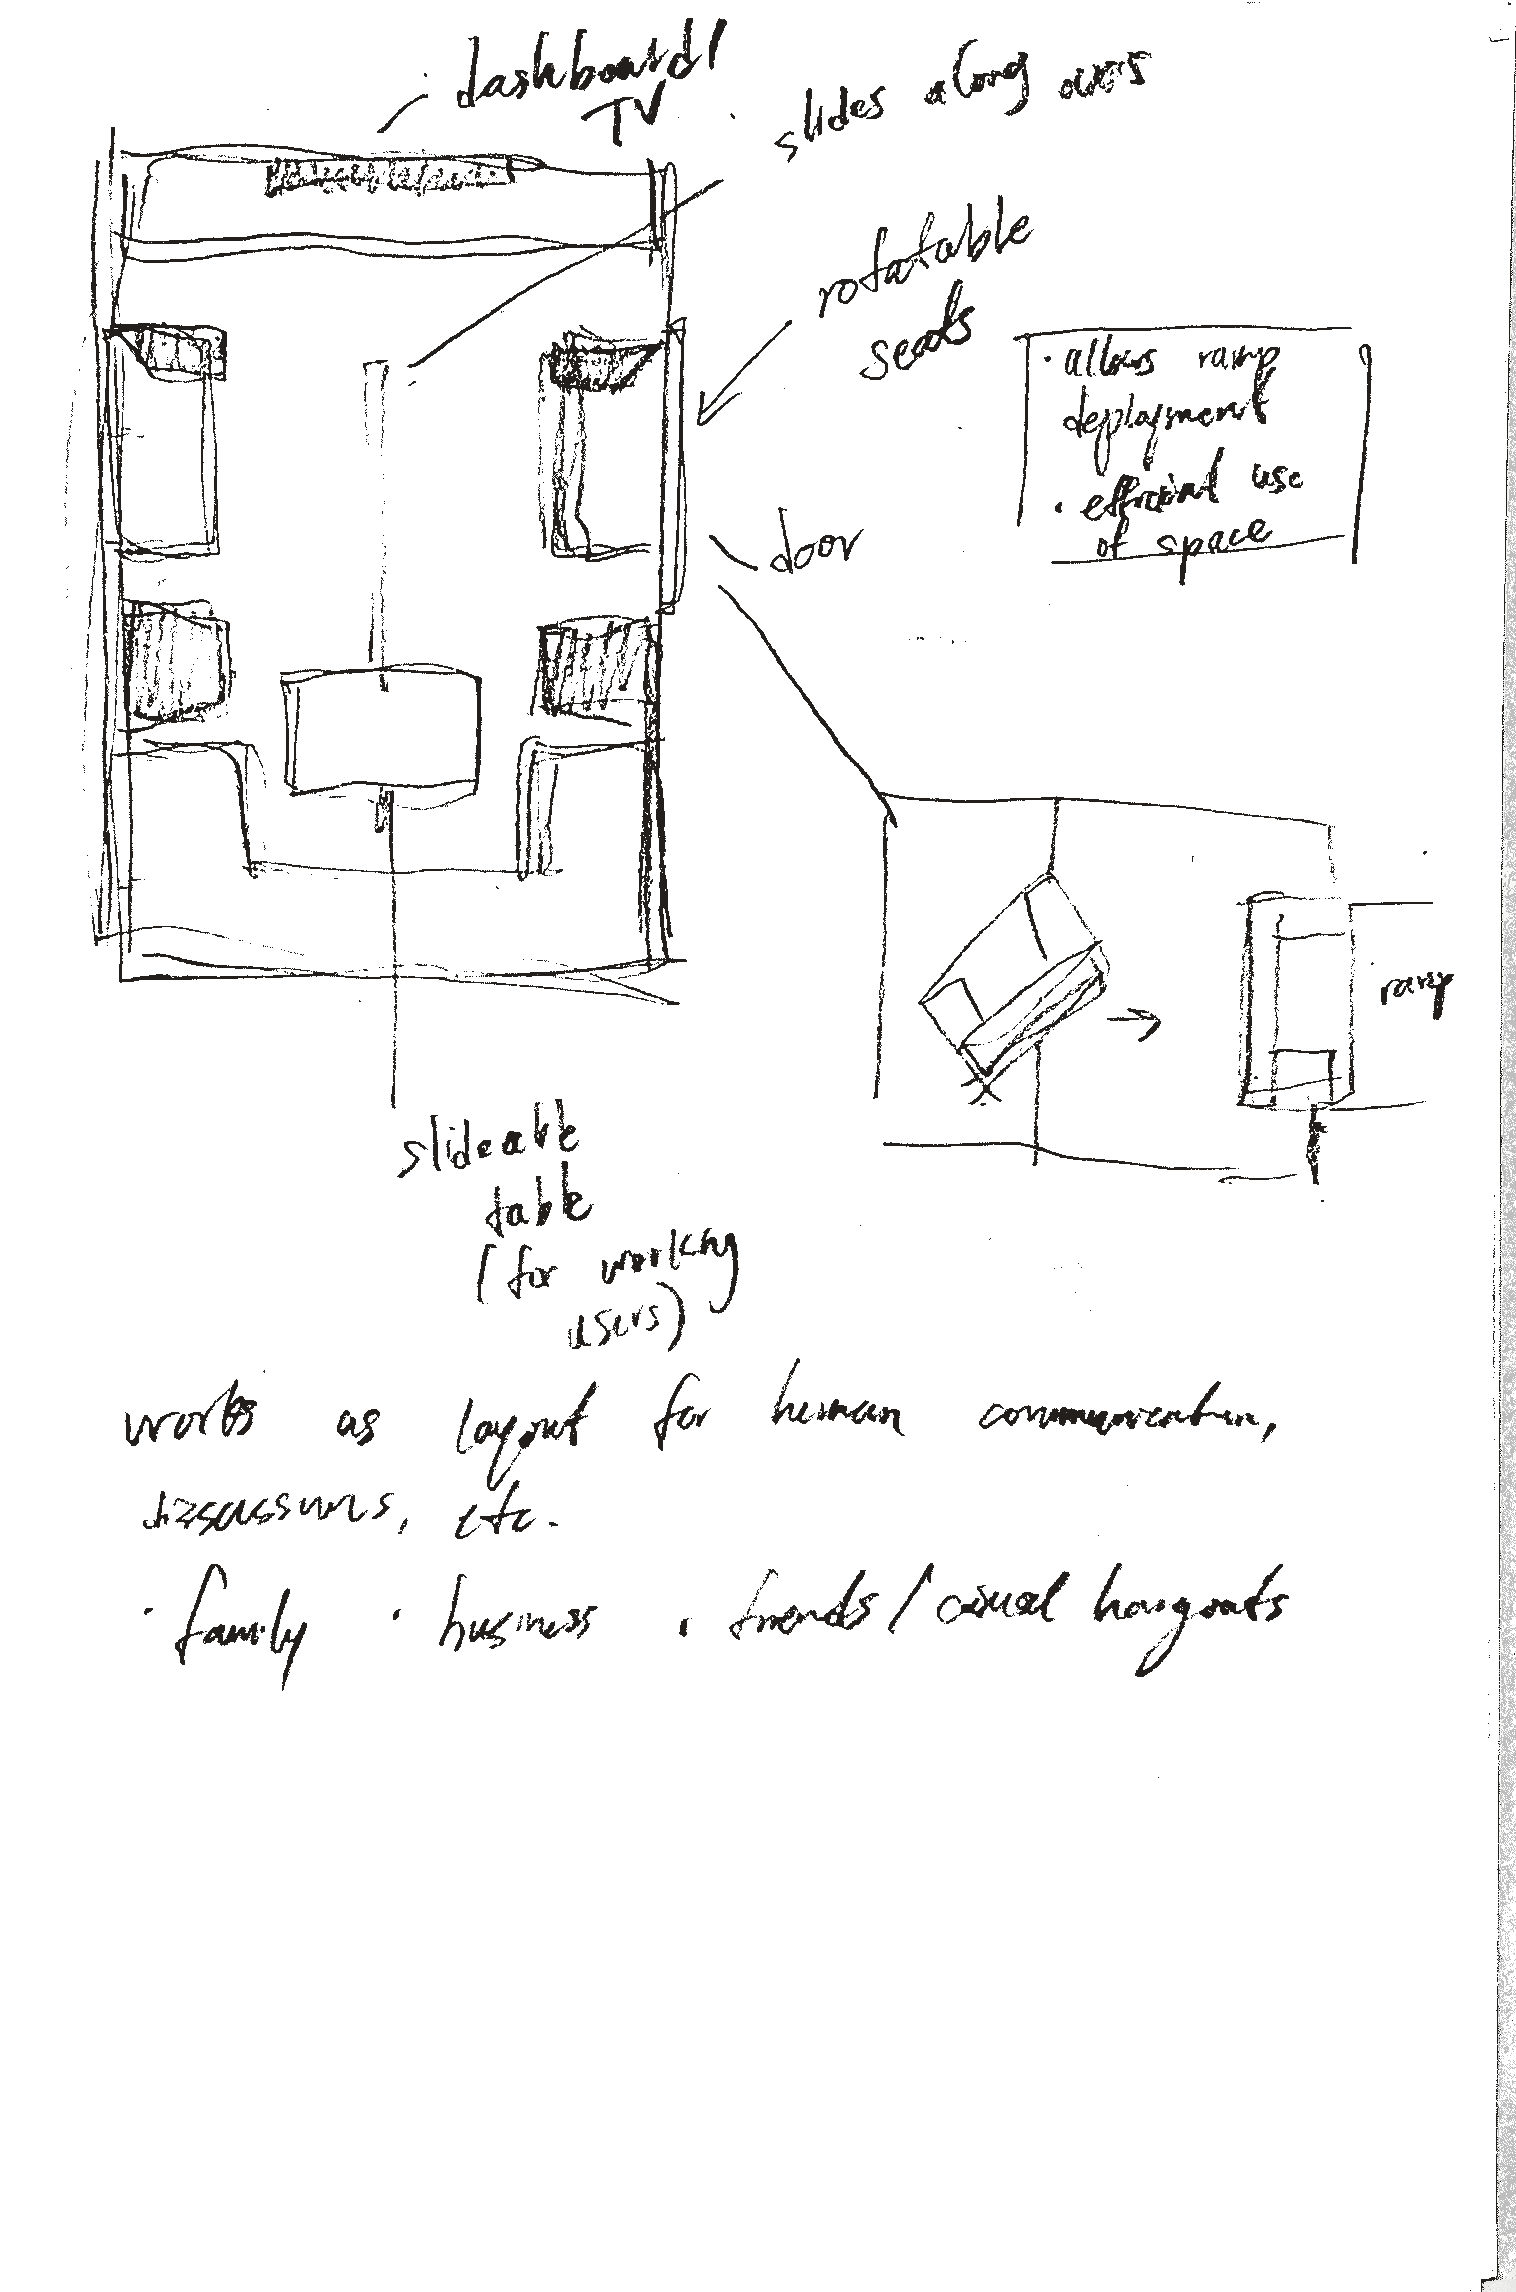 dashboard/
TV
slides along axis
rotatable
seats
· allows ramp
deployment
· efficient use
of space
door
ramp
slideable
table
(for working
users)
works as layout for human communication,
discussions, etc.
· family · business · friends/casual hangouts